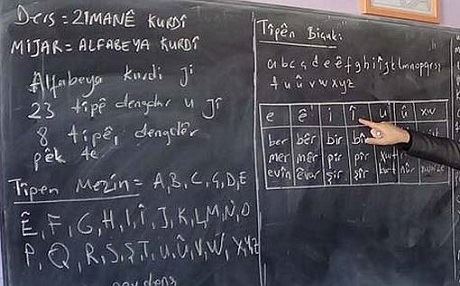 Ders = ZIMANÊ KURDÎ
MIJAR = ALFABEYA KURDÎ
Alfabeya kurdi ji
23 tîpê dengdar u jî
8 tîpê, dengdêr
pêk tê
Tîpên Mezin = A, B, C, Ç, D, E
Ê, F, G, H, I, Î, J, K, L, M, N, O
P, Q, R, S, Ş, T, U, Û, V, W, X, Y, Z
Tîpên Biçuk:
a b c ç d e ê f g h i î j k l m n o p q r s ş
t u û v w x y z
e ê i î u û xw
ber bêr bir
mer mêr pir pîr
evîn êvar şir şîr